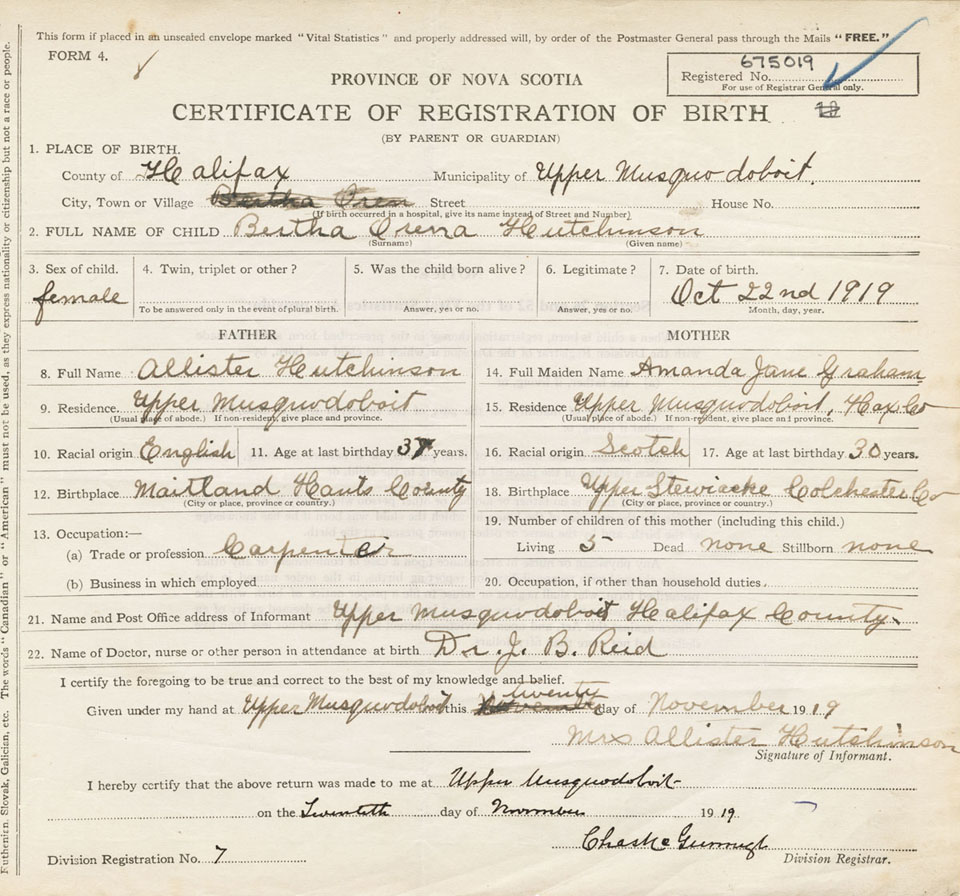 This form if placed in an unsealed envelope marked "Vital Statistics" and properly addressed will, by order of the Postmaster General pass through the Mails "FREE."
FORM 4.
675019
Registered No.
For use of Registrar General only.
PROVINCE OF NOVA SCOTIA
CERTIFICATE OF REGISTRATION OF BIRTH
(BY PARENT OR GUARDIAN)
1. PLACE OF BIRTH.
County of Halifax Municipality of Upper Musquodoboit.
City, Town or Village Bertha Oren Street House No.
(If birth occurred in a hospital, give its name instead of Street and Number)
2. FULL NAME OF CHILD Bertha Orena Hutchinson
(Surname) (Given name)
3. Sex of child. 4. Twin, triplet or other? 5. Was the child born alive? 6. Legitimate? 7. Date of birth.
female Oct 22nd 1919
To be answered only in the event of plural birth. Answer, yes or no. Answer, yes or no. Month, day, year.
FATHER MOTHER
8. Full Name Allister Hutchinson 14. Full Maiden Name Amanda Jane Graham
9. Residence Upper Musquodoboit 15. Residence Upper Musquodoboit, Hax Co
(Usual place of abode.) If non-resident, give place and province. (Usual place of abode.) If non-resident, give place and province.
10. Racial origin English 11. Age at last birthday 37 years. 16. Racial origin Scotch 17. Age at last birthday 30 years.
12. Birthplace Maitland Hants County 18. Birthplace Upper Stewiacke Colchester Co
(City or place, province or country.) (City or place, province or country.)
13. Occupation:— 19. Number of children of this mother (including this child.)
(a) Trade or profession Carpenter Living 5 Dead none Stillborn none
(b) Business in which employed 20. Occupation, if other than household duties.
21. Name and Post Office address of Informant Upper Musquodoboit Halifax County.
22. Name of Doctor, nurse or other person in attendance at birth Dr. J. B. Reid
I certify the foregoing to be true and correct to the best of my knowledge and belief.
Given under my hand at Upper Musquodoboit this twenty day of November 1919
Mrs Allister Hutchinson
Signature of Informant.
I hereby certify that the above return was made to me at Upper Musquodoboit
on the Twentieth day of November 1919.
Division Registration No. 7 Division Registrar.
Ruthenian, Slovak, Galician, etc. The words "Canadian" or "American" must not be used, as they express nationality or citizenship but not a race or people.